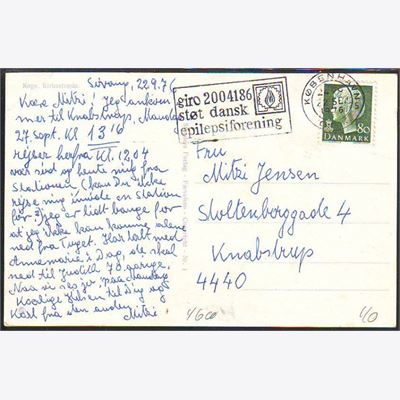 Køge, Kirkestræde.
Sövang, 22.9.76
Kære Mitri! Jeg ankom
mer til Knabstrup, Mandag
27. sept. Kl 13 16
rejser herfra Kl. 12,04
vær sød og hente mig fra
Stationen (kan Du ikke
rejse mig imøde en Station
før?) Jeg er lidt bange for
at jeg ikke kan komme alene
ned fra Toget. Har talt med
Annemarie i Dag, de skal
ned til 70 aarige.
Naa vi ses jo paa Mandag
Kærlige Hilsen til Dig og
Karl fra den anden Mitri
giro 2004186
støt dansk
epilepsiforening
KØBENHAVN
80
DANMARK
Fru
Mitri Jensen
Stoltenberggade 4
Knabstrup
4440